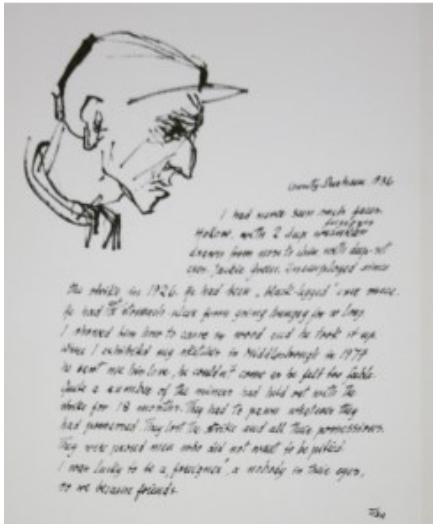 County Durham 1936
I had never seen such faces.
Hollow, with 2 deep furrows
drawn from nose to chin with deep-set
eyes. Unemployed since
the strike in 1926. He had been "black-legged" ever since.
He had stomach ulcer from going hungry for so long.
I showed him how to carve in wood and he took it up.
When I exhibited my sketches in Middlesbrough in 1977
he sent me his love, he couldn't come as he felt too feeble.
Quite a number of the miners had held out with the
strike for 18 months. They had to pawn whatever they
had possessed. They lost the strike and all their possessions.
They were proud men who did not want to be pitied.
I was lucky to be a "foreigner", a nobody in their eyes,
so we became friends.